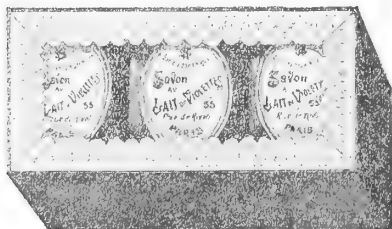 Savon
AU
LAIT DE VIOLETTES
55
PARIS
Savon
AU
LAIT DE VIOLETTES
55
Rue de Rivoli
PARIS
Savon
LAIT DE VIOLETTES
55
PARIS